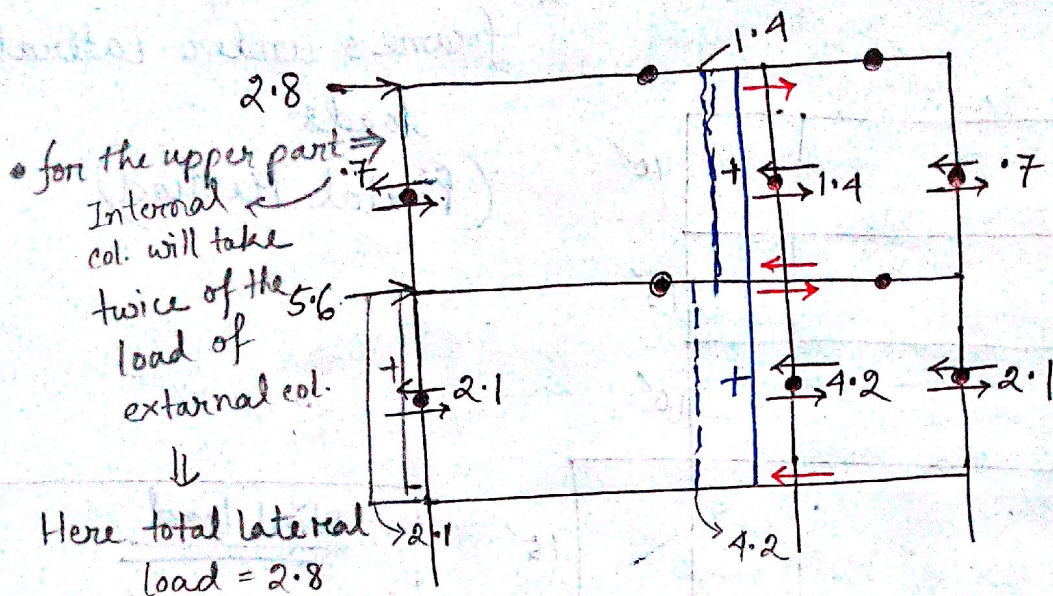 1.4
2.8
• for the upper part ⇒
.7
Internal
col. will take
twice of the
load of
extarnal col.
⇓
Here total latereal
load = 2.8
+
1.4
.7
5.6
+
2.1
+
4.2
2.1
-
2.1
4.2